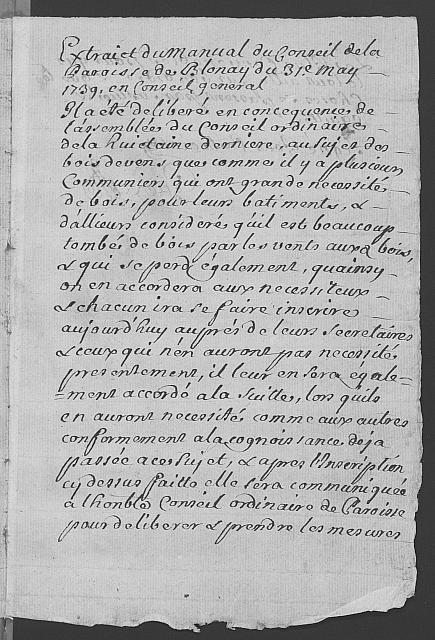 Extrait du Manual du Conseil de la
Paroisse de Blonay du 31e May
1739, en Conseil general
Il a été deliberé en concequence de
l'assemblée du Conseil ordinaire
de la huictaine derniere, au sujet des
bois devens que comme il y a plusieurs
Communiers qui ont grande necessité
de bois, pour leurs batiments, &
d'allieurs consideré qu'il est beaucoup
tombé de bois par les vents aux d bois,
& qui se perd également, qu'ainsy
on en accordera aux necessiteux
& chacun ira se faire inscrire
aujourd'huy auprés de leurs secretaires
& ceux qui n'en auront pas necessité
presentement, il leur en sera égale=
=ment accordé a la suitte, lors quils
en auront necessité comme aux autres
conformement a la cognoissance deja
passée a ce sujet, & apres l'Inscription
cy dessus faitte elle sera communiquée
à l'honble Conseil ordinaire de Paroisse
pour deliberer & prendre les mesures